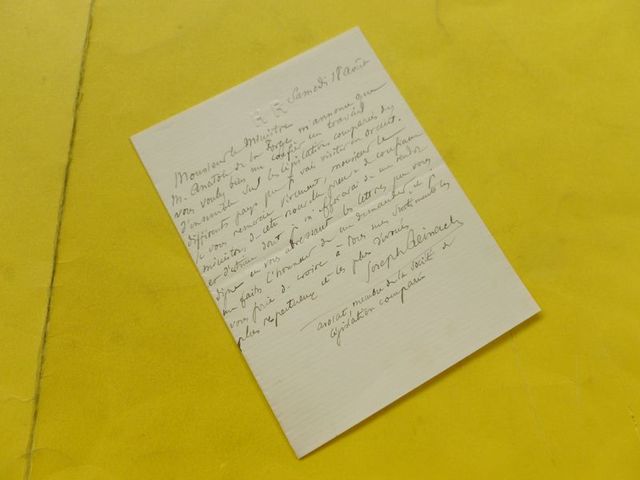 R R
Samedi 18 août
Monsieur le Ministre
M. Anatole de la Forge m'annonce que
vous voulez bien me confier un travail
d'ensemble sur les législations comparées des
différents pays que je vais visiter en Orient.
Je vous remercie vivement, Monsieur le
ministre, de cette nouvelle preuve de confiance
et d'estime dont je m'efforcerai de me rendre
digne en vous adressant les lettres que vous
me faites l'honneur de me demander, et je
vous prie de croire à tous mes sentiments les
plus respectueux et les plus dévoués
Joseph Reinach
avocat, membre de la société de
législation comparée